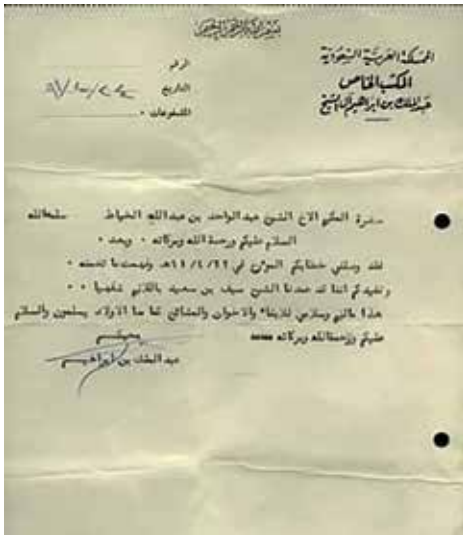 بسم الله الرحمن الرحيم
المملكة العربية السعودية
المكتب الخاص
عبدالملك بن ابراهيم آل الشيخ
الرقم
التاريخ
المشفوعات
حضرة المكرم الاخ الشيخ عبدالواحد بن عبدالله الخياط سلمه الله
السلام عليكم ورحمة الله وبركاته ٠ وبعد ٠
لقد وصلني خطابكم المؤرخ في وفهمت ما تضمنه ٠
ونفيدكم اننا قد الشيخ سيف بن سعيد باللازم شفهيا ٠ ٠
هذا مالزم وسلامي للابناء والاخوان والمشائخ كما منا الاولاد يسلمون والسلام
عليكم ورحمة الله وبركاته
عبدالملك بن ابراهيم